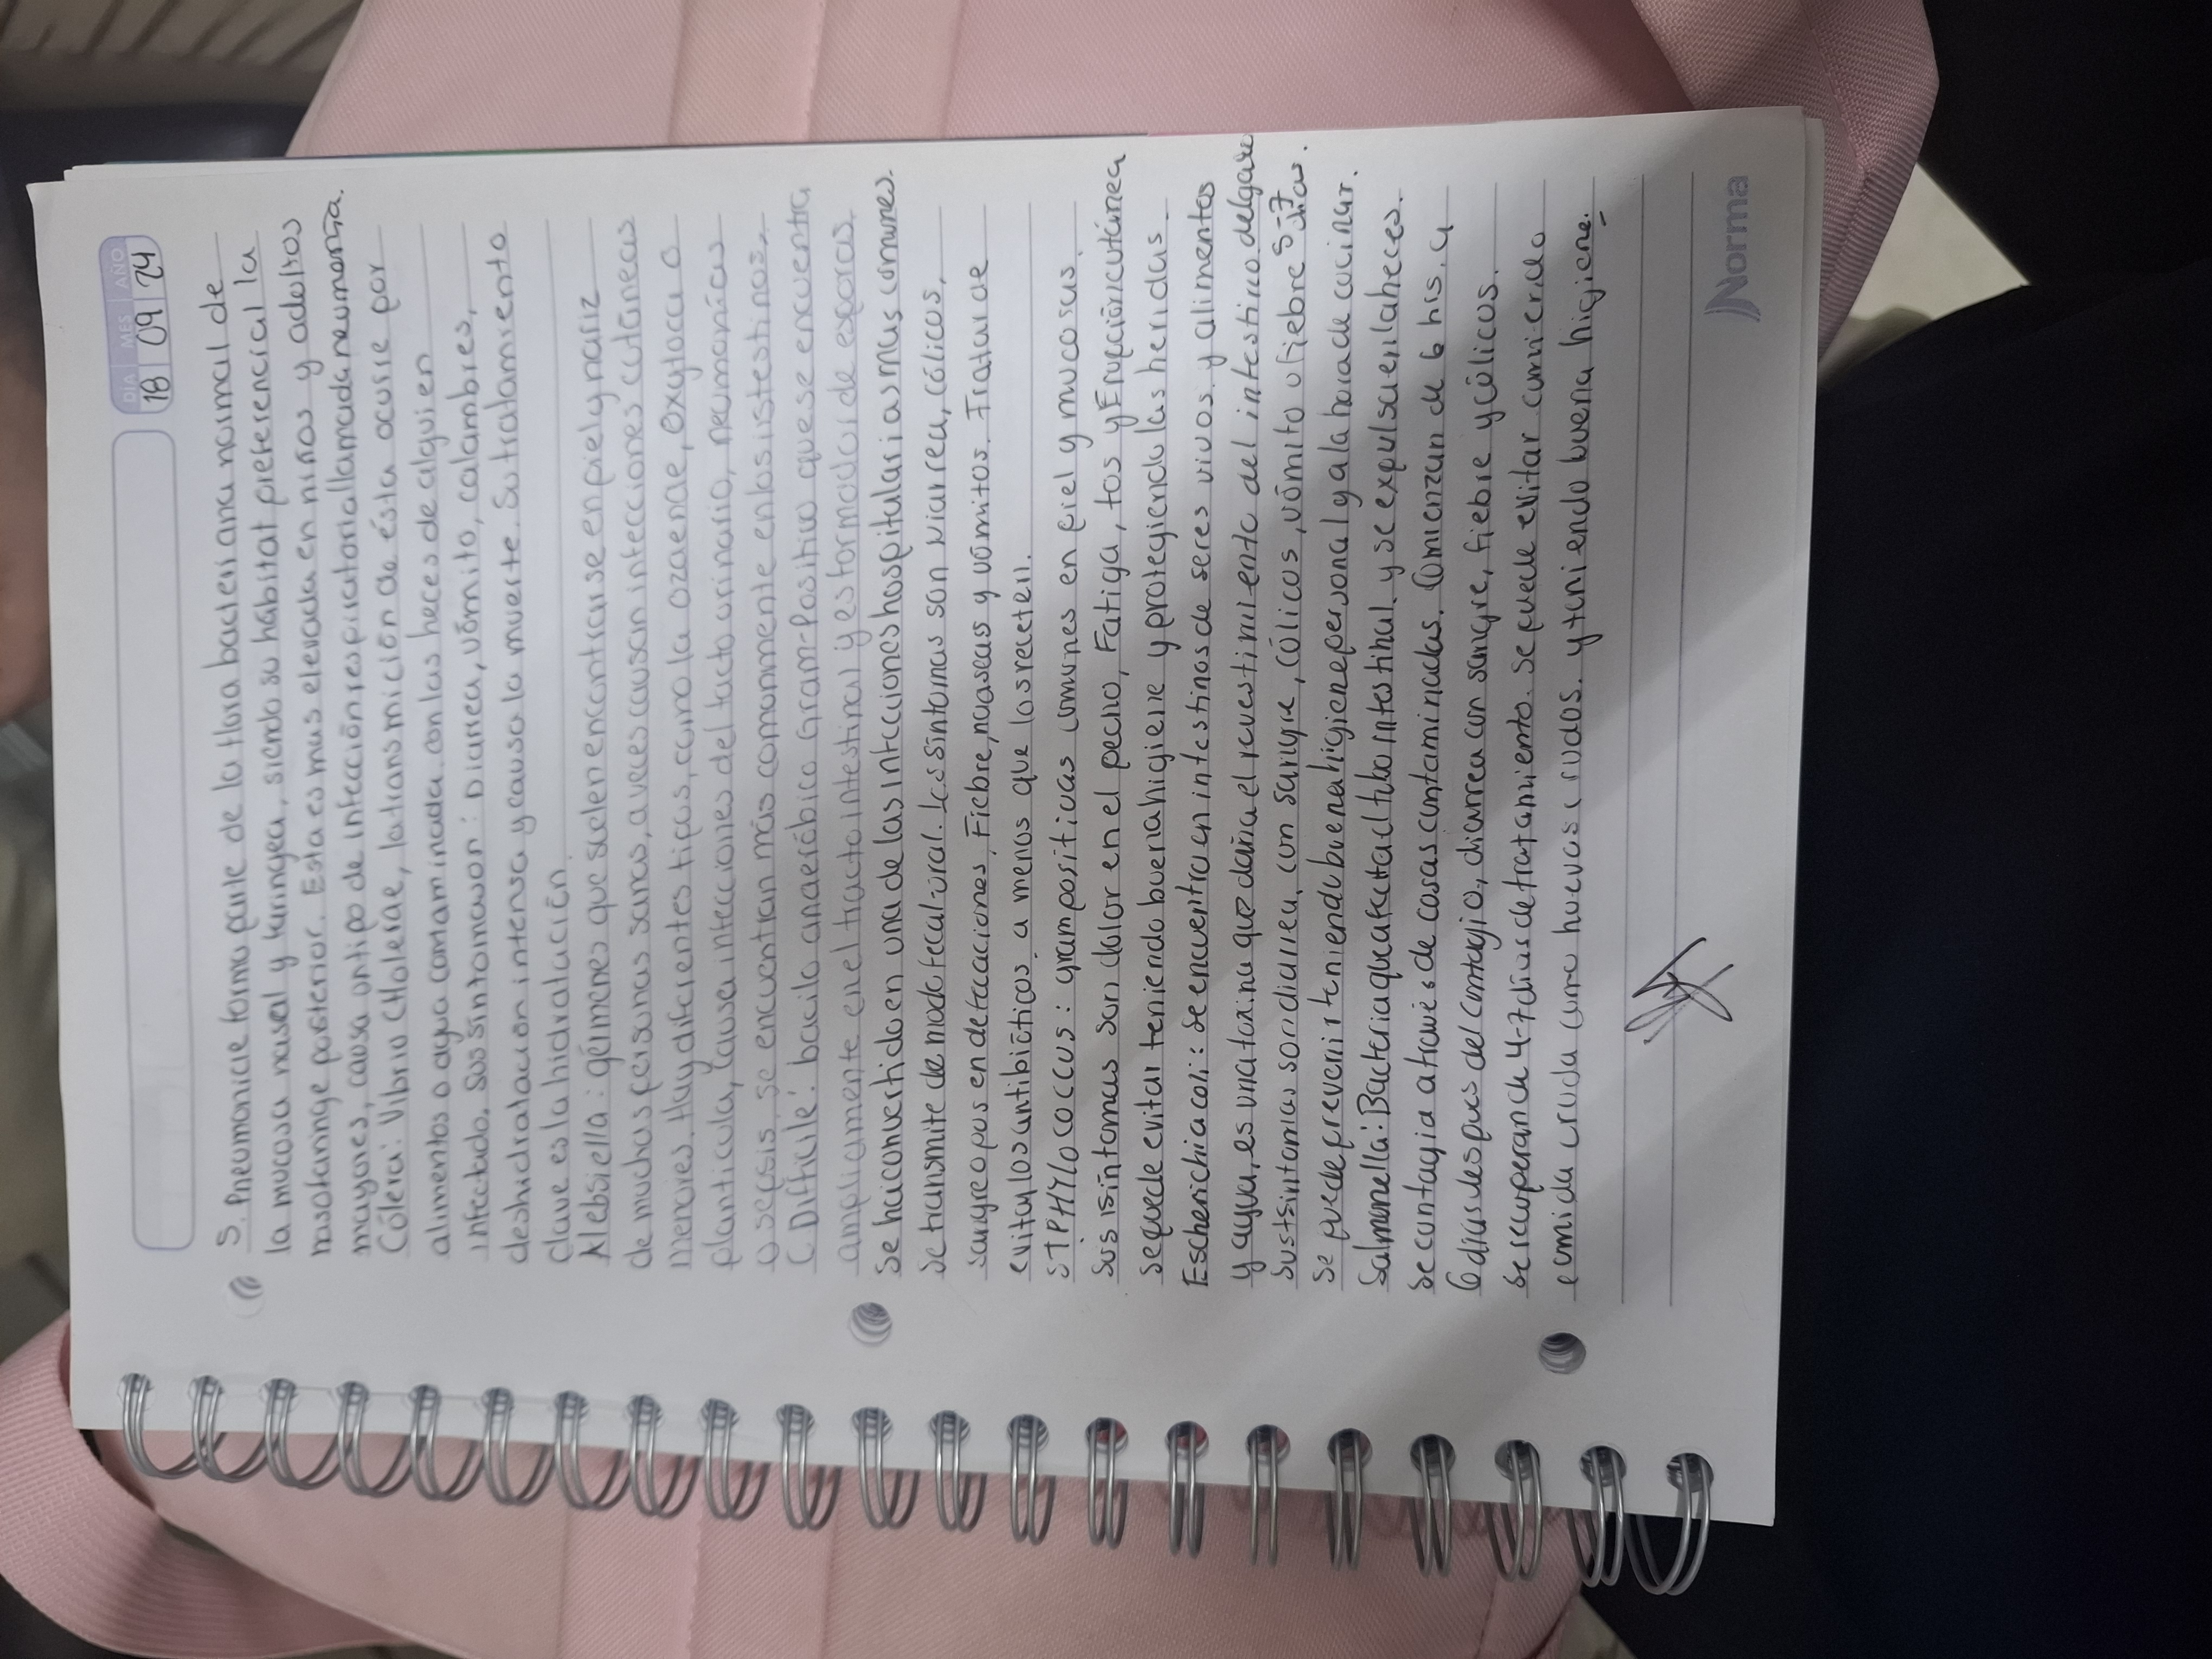 DÍA MES AÑO
18 09 24
S. Pneumoniae forma parte de la flora bacteriana normal de
la mucosa nasal y faringea, siendo su hábitat preferencial la
nasofaringe posterior. Esta es mas elevada en niños y adultos
mayores, causa un tipo de infección respiratoria llamada neumonía.
Cólera: Vibrio Cholerae, la transmición de ésta ocurre por
alimentos o agua contaminada con las heces de alguien
infectado. Sus síntomas son: Diarrea, vómito, calambres,
deshidratación intensa y causa la muerte. Su tratamiento
clave es la hidratación.
Klebsiella: gérmenes que suelen encontrarse en piel y nariz
de muchas personas sanas, a veces causan infecciones cutáneas
menores. Hay diferentes tipos, como la ozaenae, oxytoca o
planticula, causa infecciones del tacto urinario, neumonías
o sepsis. se encuentran más comunmente en los istestinos.
C Difficile: bacilo anaeróbico Gram-Positivo que se encuentra
ampliamente en el tracto intestinal y es formador de esporas.
Se ha convertido en una de las infecciones hospitalarias mas comunes.
Se transmite de modo fecal-oral. Los síntomas son Diarrea, cólicos,
sangre o pus en defecaciones, Fiebre, nuaseas y vómitos. Tratar de
evitar los antibióticos a menos que los receten.
STPHYLOCOCCUS: grampositivas comunes en piel y mucosas.
Sus isintomas son dolor en el pecho, Fatiga, tos y Erupción cutánea
se puede evitar teniendo buena higiene y protegiendo las heridas.
Escherichia coli: se encuentra en intestinos de seres vivos. y alimentos
y agua, es una toxina que daña el revestimiento del intestino delgado
Sus síntomas son diarrea con sangre, cólicos, vómito o fiebre 5-7 días.
Se puede prevenir teniendo buena higiene personal y a la hora de cocinar.
Salmonella: Bacteria que afecta el tubo intestinal. y se expulsa en la heces.
Se contagia através de cosas contaminadas. Comienzan de 6 hrs. a
6 dias despues del contagio, diarrea con sangre, fiebre y cólicos.
Se recuperan de 4-7 dias de tratamiento. Se puede evitar comiendo
comida cruda como huevos crudos. y teniendo buena higiene.
Norma